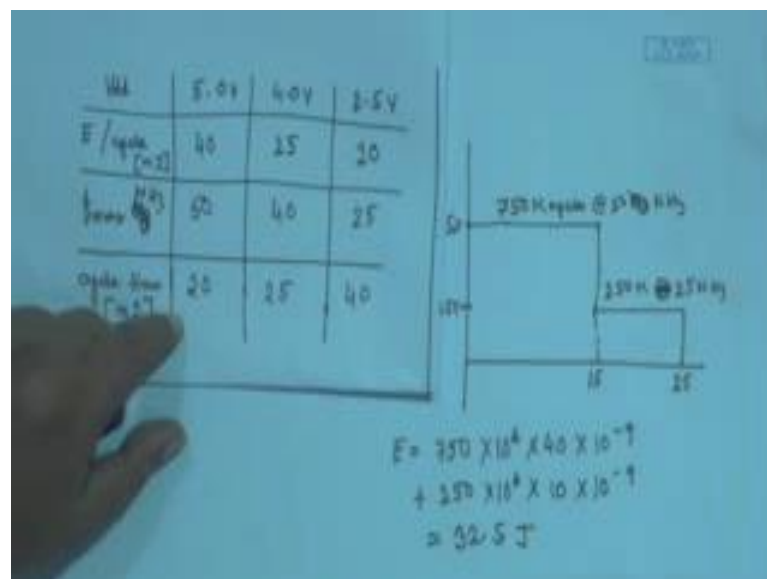 Vdd 5.0V 4.0V 2.5V
E/cycle [nJ] 40 25 10
fmax 50 40 25
cycle time [nS] 20 25 40
750 M cycle @ 50 MHz
50
250 M @ 25 MHz
15 25
E = 750 X 10⁶ X 40 X 10⁻⁹
+ 250 X 10⁶ X 10 X 10⁻⁹
= 32.5 J